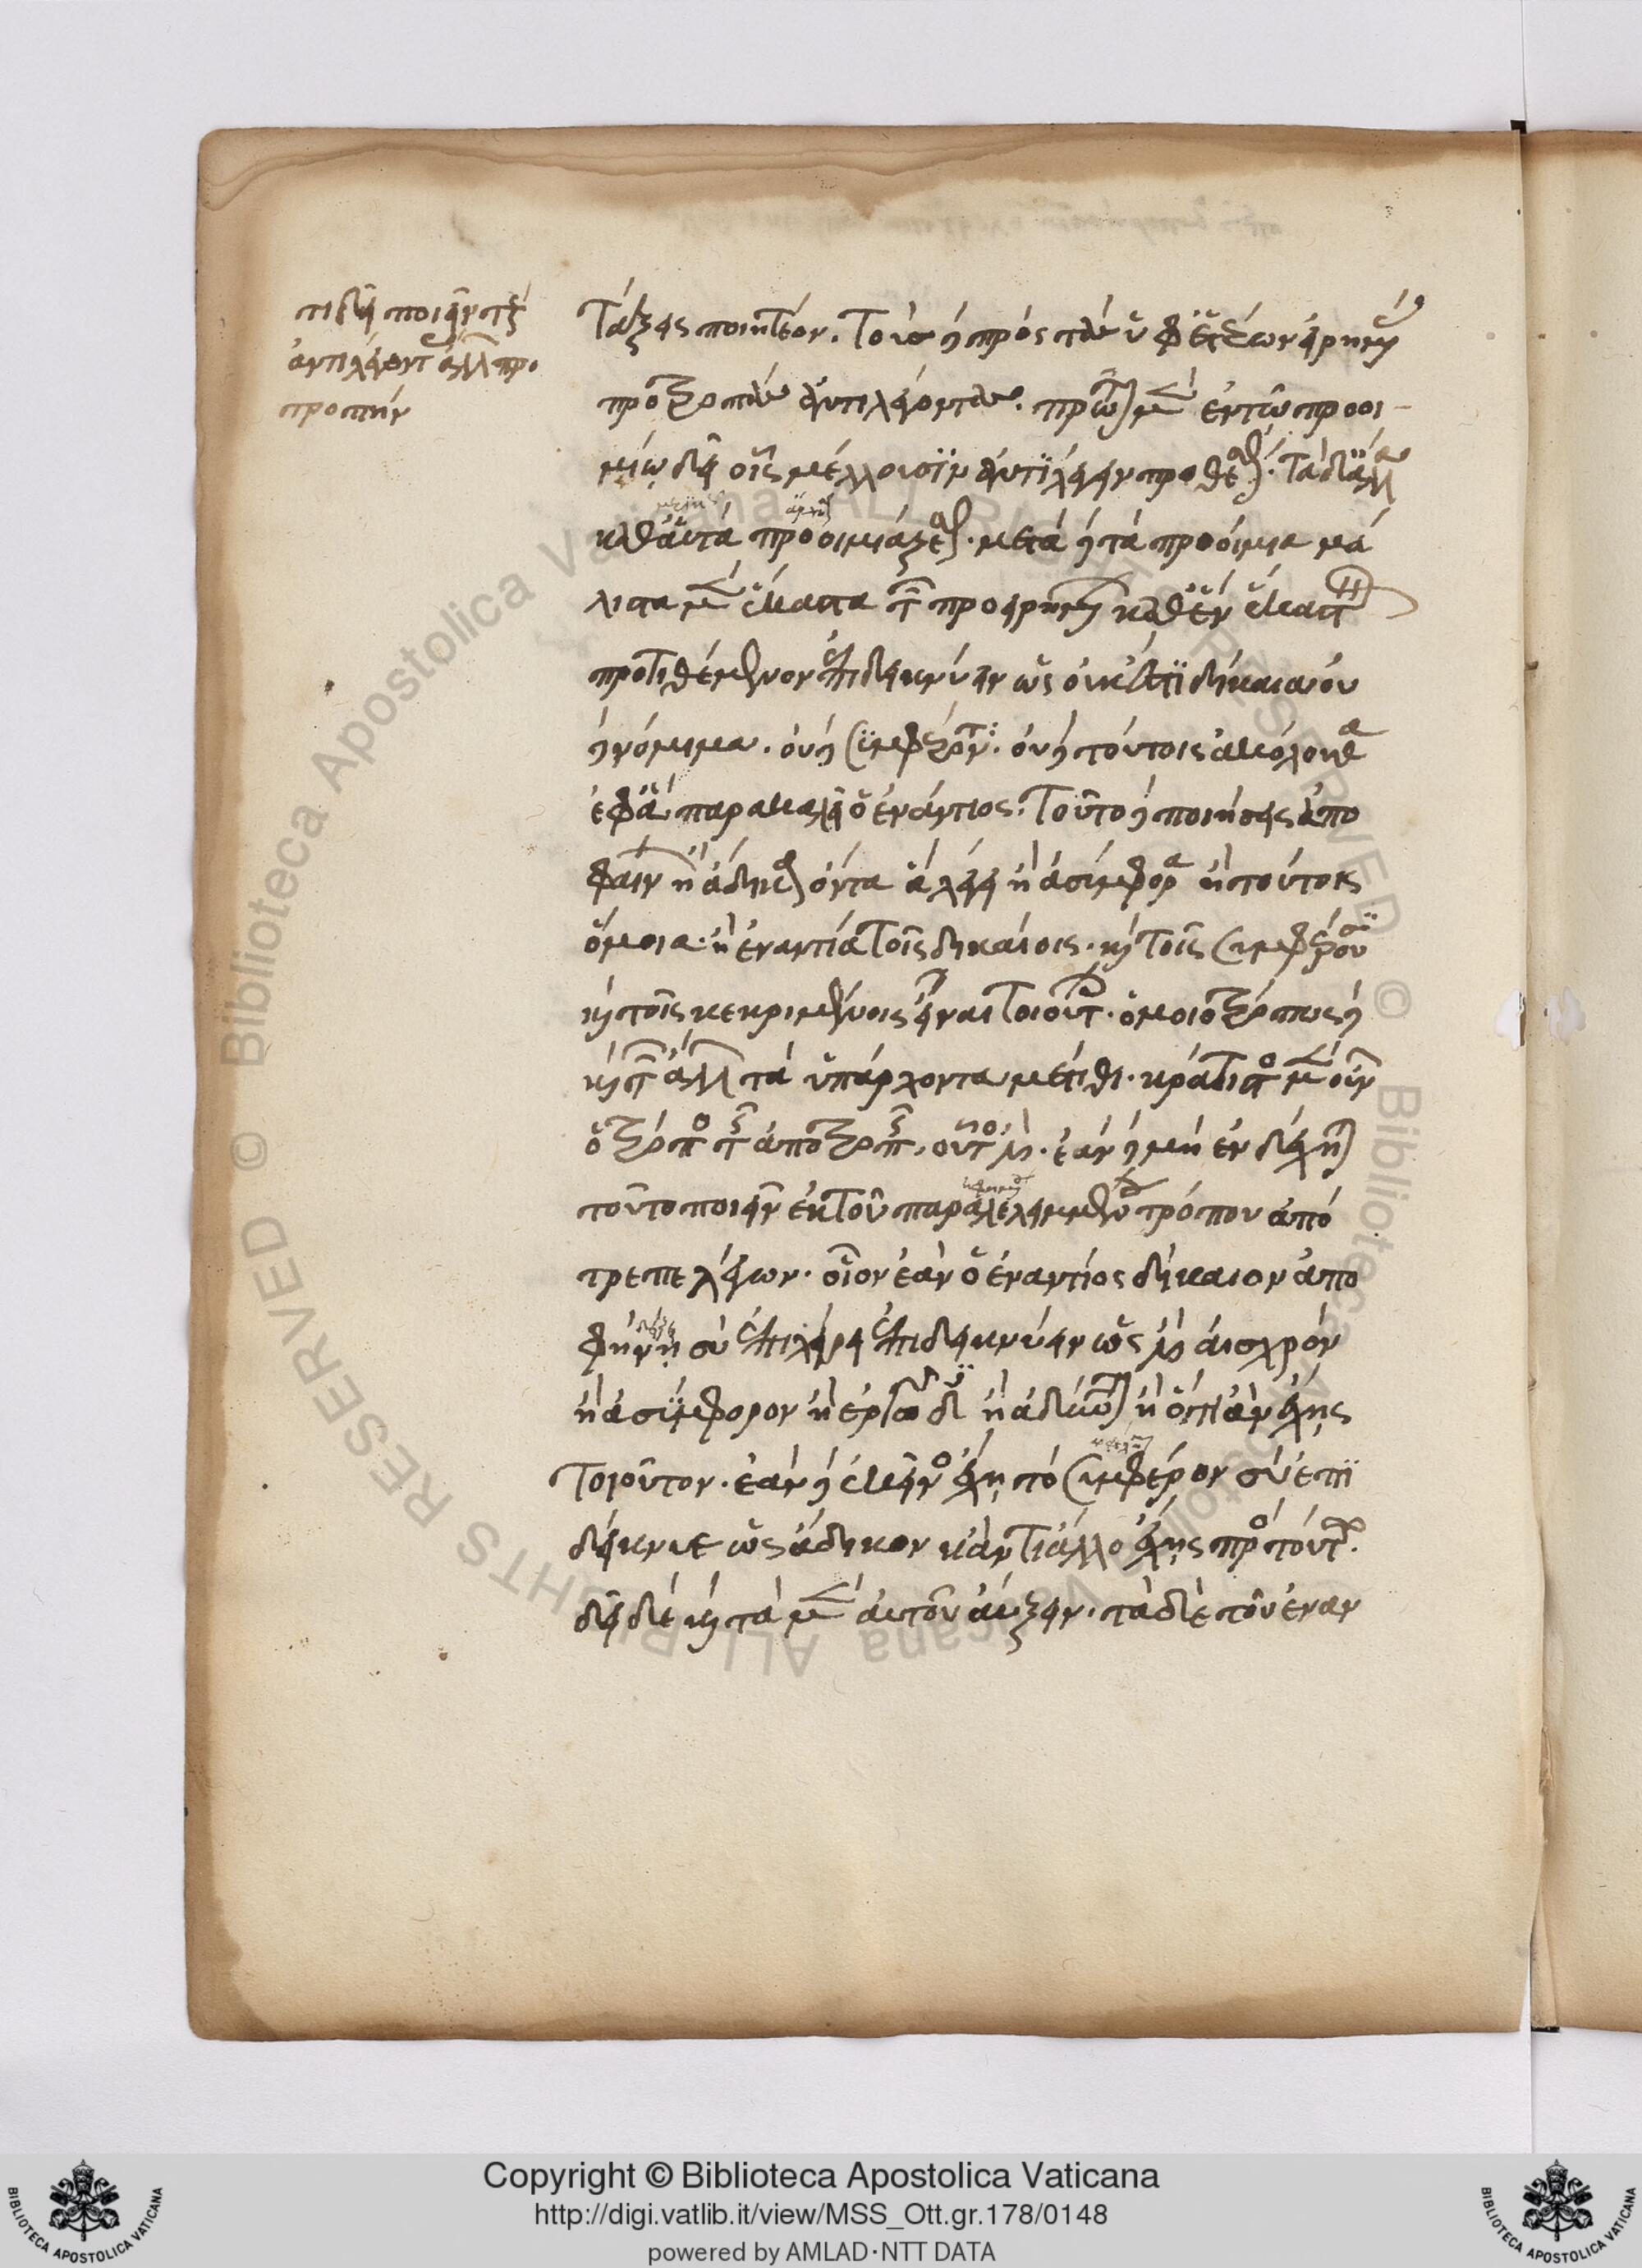 τί δεῖ ποιεῖν τοὺς
ἀντιλέγοντας ἄλλην προ
τροπήν
τάξεις ποιητέον. τοῖς δὲ πρὸς τῶν ὑφ' ἑτέρων εἰρημένων
προτροπῶν ἀντιλέγοντας. πρῶτον μὲν ἐν τῷ προοι-
μίῳ δεῖ οἷς μέλλουσιν ἀντιλέγειν προθέσθαι. τὰ δὲ ἄλλα
καθ' αὑτὰ προοιμιάζεσθαι. μετὰ δὲ τὰ προοίμια μά
λιστα μὲν ἕκαστα τῶν προειρημένων καθ' ἓν ἕκαστον
προτιθέμενον ἐπιδεικνύειν ὡς οὐκ ἔστι δίκαια οὐ
δὲ νόμιμα. οὐδὲ συμφέροντα. οὐδὲ τούτοις ἀκόλουθα
ἐφ' ἃ παρακαλεῖ ὁ ἐναντίος. τοῦτο δὲ ποιήσεις ἀπο
φαίνων ἢ ἄδικα ὄντα ἃ λέγει ἢ ἀσύμφορα ἢ τούτοις
ὅμοια. ἢ ἐναντία τοῖς δικαίοις. καὶ τοῖς συμφέρουσι
καὶ τοῖς κεκριμένοις εἶναι τοιούτοις. ὁμοιοτρόπως δὲ
καὶ τῶν ἄλλων τὰ ὑπάρχοντα μέτιθι. κράτιστος μὲν οὖν
ὁ τρόπος τῆς ἀποτροπῆς οὗτός ἐστι. ἐὰν δὲ μὴ ἐνδέχηται
τοῦτο ποιεῖν ἐκ τοῦ παραλελειμμένου τρόπου ἀπό
τρεπε λέγων. οἷον ἐὰν ὁ ἐναντίος δίκαιον ἀπο
φήνῃ σὺ ἐπιχείρει ἐπιδεικνύειν ὡς ἔστιν αἰσχρὸν
ἢ ἀσύμφορον ἢ ἐργῶδες ἢ ἀδύνατον ἢ ὅτι ἂν ἔχῃς
τοιοῦτον. ἐὰν δὲ ἐκεῖνος ἔχῃ τὸ συμφέρον σὺ ἐπι
δείκνυε ὡς ἄδικον κἄν τι ἄλλο ἔχῃς πρὸς τούτῳ.
δεῖ δὲ καὶ τὰ μὲν αὑτοῦ αὔξειν. τὰ δὲ τοῦ ἐναν
Copyright © Biblioteca Apostolica Vaticana
http://digi.vatlib.it/view/MSS_Ott.gr.178/0148
powered by AMLAD·NTT DATA